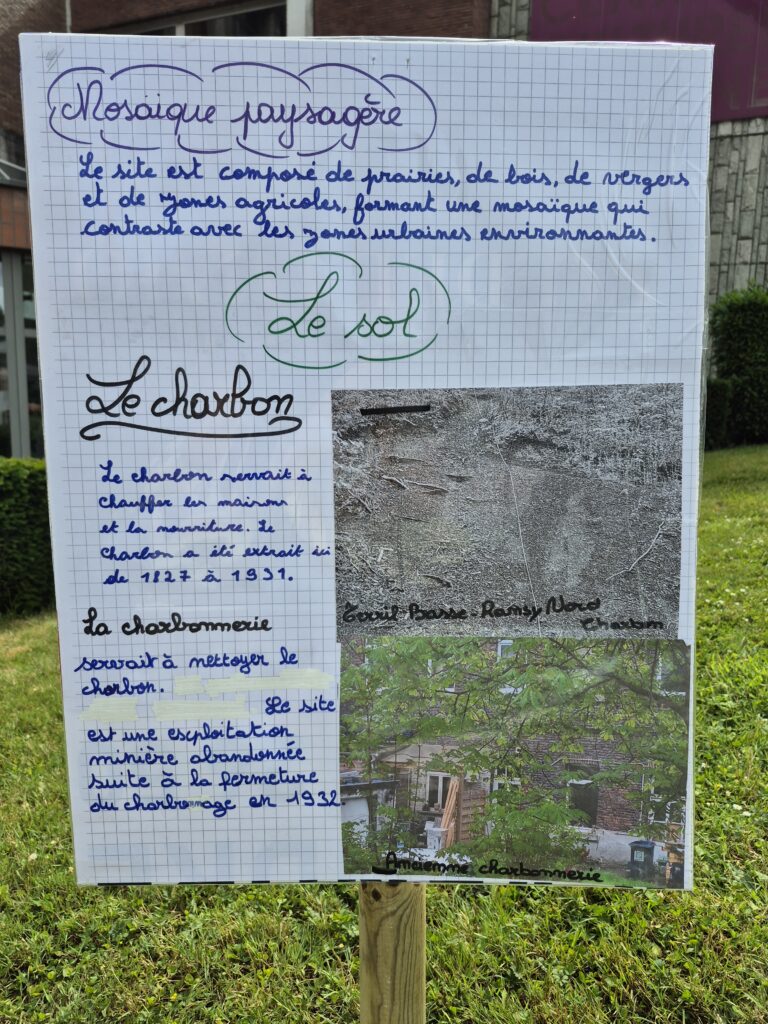 Mosaïque paysagère
Le site est composé de prairies, de bois, de vergers
et de zones agricoles, formant une mosaïque qui
contraste avec les zones urbaines environnantes.
Le sol
Le charbon
Le charbon servait à
chauffer les maisons
et la nourriture. Le
charbon a été extrait ici
de 1827 à 1931.
Terril Basse-Ramsy Nord
Charbon
La charbonnerie
servait à nettoyer le
charbon.
Le site
est une exploitation
minière abandonnée
suite à la fermeture
du charbonage en 1932.
Ancienne charbonnerie